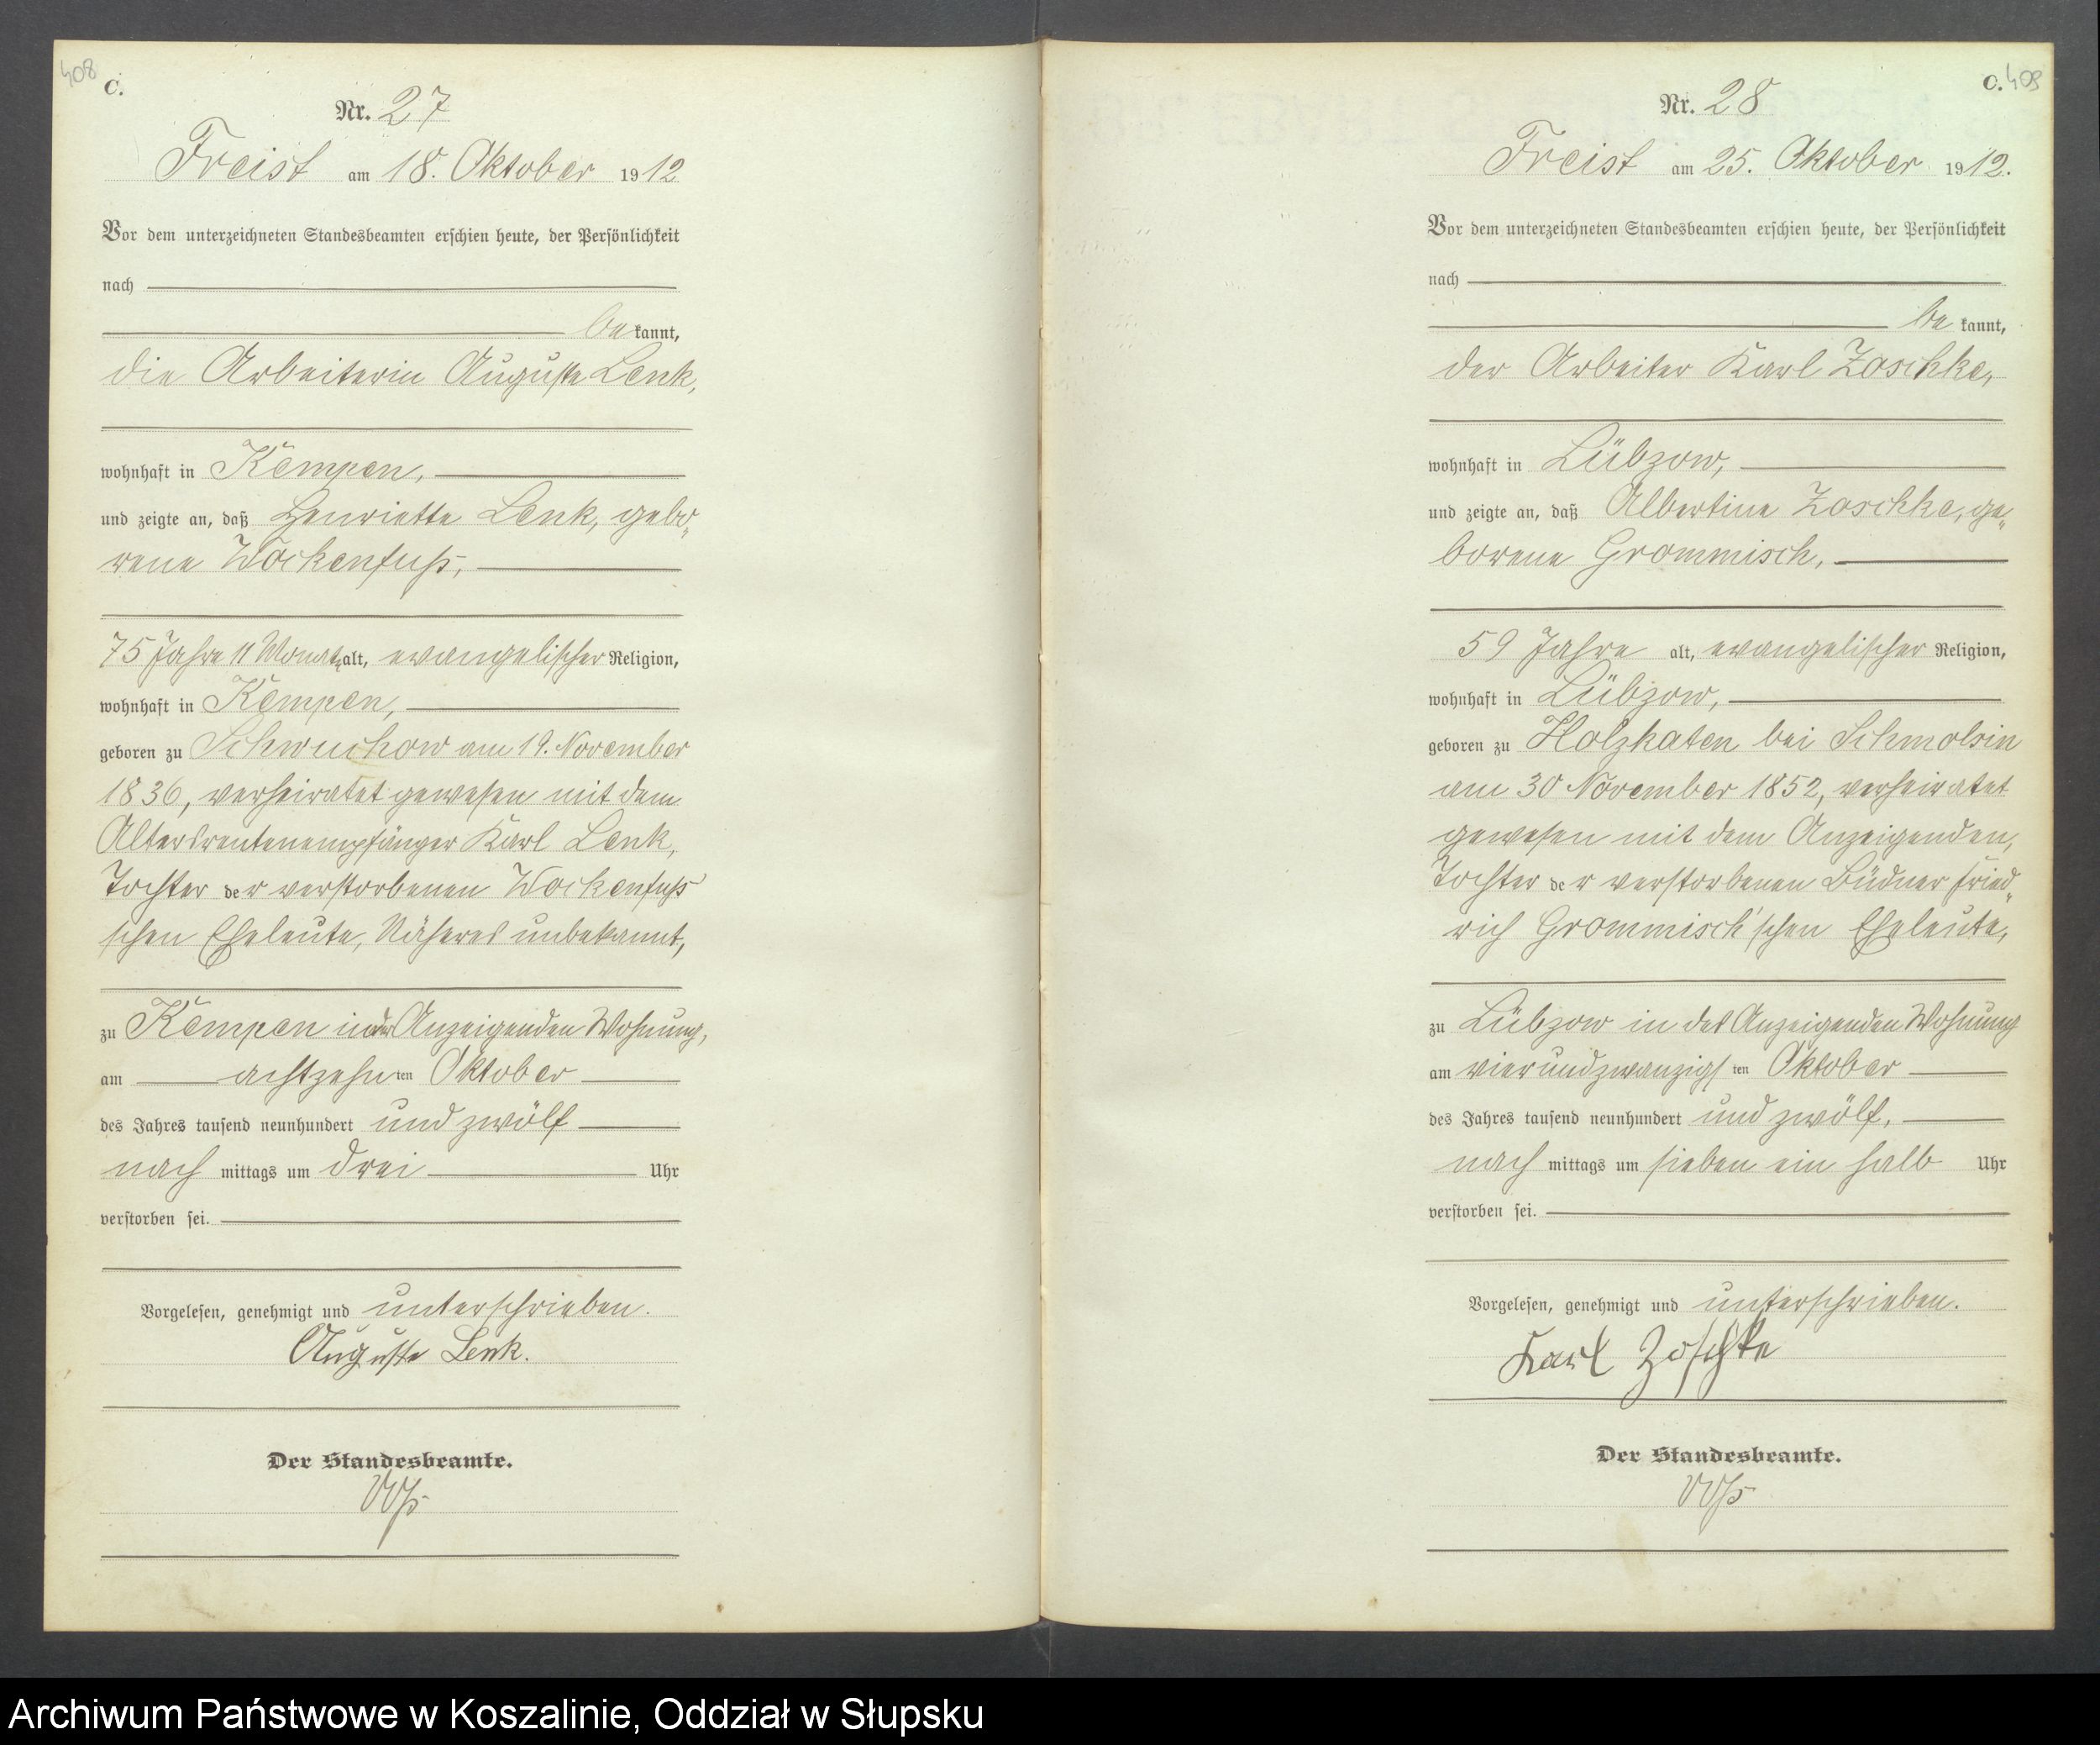 408
C.
Nr. 27
Freist am 18. Oktober 1912
Vor dem unterzeichneten Standesbeamten erschien heute, der Persönlichkeit
nach
be kannt,
die Arbeiterin Auguste Lenk,
wohnhaft in Kempen,
und zeigte an, daß Henriette Lenk, gebo„
rene Wockenfuß,
75 Jahre 11 Monate alt, evangelischer Religion,
wohnhaft in Kempen,
geboren zu Schwuchow am 19. November
1836, verheiratet gewesen mit dem
Altersrentenempfänger Karl Lenk,
Tochter der verstorbenen Wockenfuß'
schen Eheleute, Näheres unbekannt,
zu Kempen in der Anzeigenden Wohnung,
am achtzehnten Oktober
des Jahres tausend neunhundert und zwölf
nach mittags um drei Uhr
verstorben sei.
Vorgelesen, genehmigt und unterschrieben.
Auguste Lenk.
Der Standesbeamte.
C. 409
Nr. 28
Freist am 25. Oktober 1912.
Vor dem unterzeichneten Standesbeamten erschien heute, der Persönlichkeit
nach
be kannt,
der Arbeiter Karl Zoschke,
wohnhaft in Lübzow,
und zeigte an, daß Albertine Zoschke, ge„
borene Grommisch,
59 Jahre alt, evangelischer Religion,
wohnhaft in Lübzow,
geboren zu Holzkaten bei Schmolsin
am 30 November 1852, verheiratet
gewesen mit dem Anzeigenden,
Tochter der verstorbenen Büdner Fried„
rich Grommisch'schen Eheleute,
zu Lübzow in des Anzeigenden Wohnung
am vierundzwanzigsten Oktober
des Jahres tausend neunhundert und zwölf,
nach mittags um sieben ein halb Uhr
verstorben sei.
Vorgelesen, genehmigt und unterschrieben.
Karl Zoschke
Der Standesbeamte.
Archiwum Państwowe w Koszalinie, Oddział w Słupsku